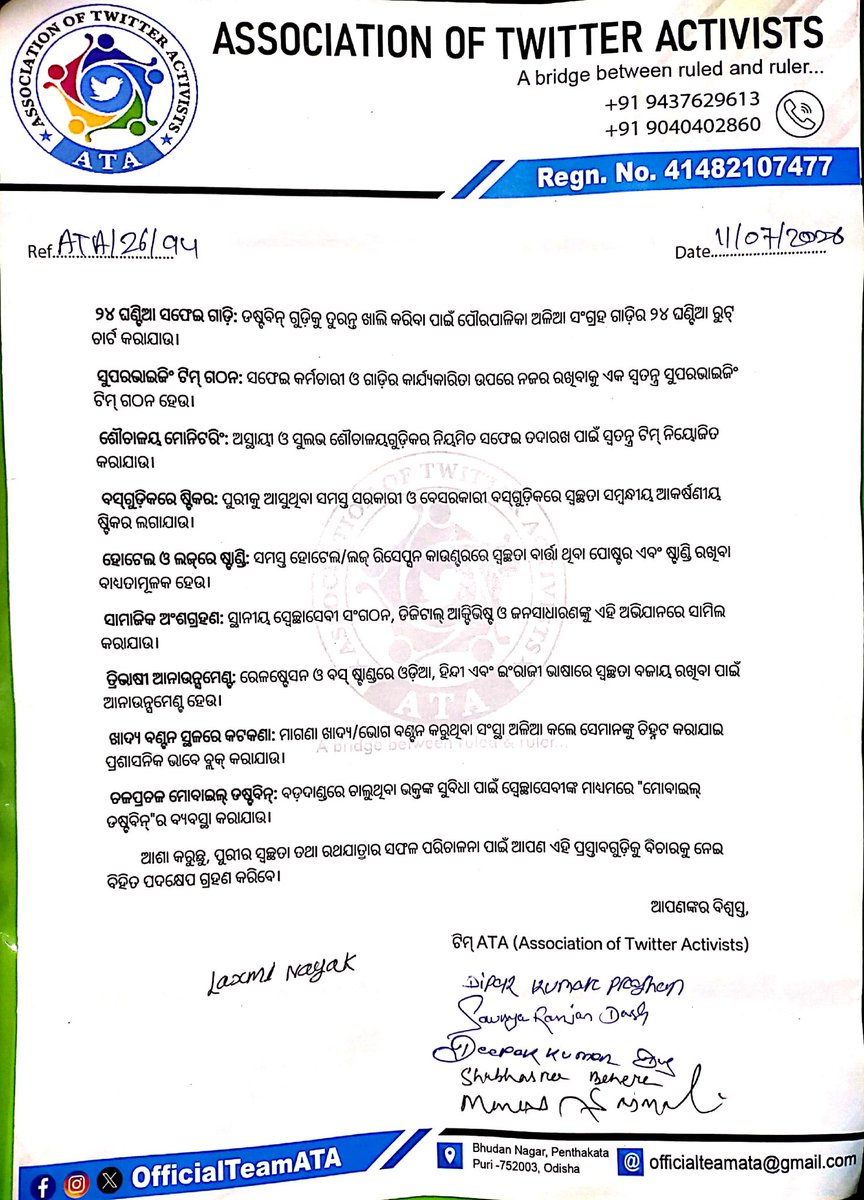 ASSOCIATION OF TWITTER ACTIVISTS
ATA
ASSOCIATION OF TWITTER ACTIVISTS
A bridge between ruled and ruler...
+91 9437629613
+91 9040402860
Regn. No. 41482107477
Ref. ATA/26/94
Date. 11/07/2026
୨୪ ଘଣ୍ଟିଆ ସଫେଇ ଗାଡ଼ି: ଡଷ୍ଟବିନ୍ ଗୁଡ଼ିକୁ ତୁରନ୍ତ ଖାଲି କରିବା ପାଇଁ ପୌରପାଳିକା ଅଳିଆ ସଂଗ୍ରହ ଗାଡ଼ିର ୨୪ ଘଣ୍ଟିଆ ରୁଟ୍
ଚାର୍ଟ କରାଯାଉ।
ସୁପରଭାଇଜିଂ ଟିମ୍ ଗଠନ: ସଫେଇ କର୍ମଚାରୀ ଓ ଗାଡ଼ିର କାର୍ଯ୍ୟକାରିତା ଉପରେ ନଜର ରଖିବାକୁ ଏକ ସ୍ୱତନ୍ତ୍ର ସୁପରଭାଇଜିଂ
ଟିମ୍ ଗଠନ ହେଉ।
ଶୌଚାଳୟ ମୋନିଟରିଂ: ଅସ୍ଥାୟୀ ଓ ସୁଲଭ ଶୌଚାଳୟଗୁଡ଼ିକର ନିୟମିତ ସଫେଇ ତଦାରଖ ପାଇଁ ସ୍ୱତନ୍ତ୍ର ଟିମ୍ ନିୟୋଜିତ
କରାଯାଉ।
ବସ୍‌ଗୁଡ଼ିକରେ ଷ୍ଟିକର: ପୁରୀକୁ ଆସୁଥିବା ସମସ୍ତ ସରକାରୀ ଓ ବେସରକାରୀ ବସ୍‌ଗୁଡ଼ିକରେ ସ୍ୱଚ୍ଛତା ସମ୍ବନ୍ଧୀୟ ଆକର୍ଷଣୀୟ
ଷ୍ଟିକର ଲଗାଯାଉ।
ହୋଟେଲ ଓ ଲଜ୍‌ରେ ଷ୍ଟାଣ୍ଡି: ସମସ୍ତ ହୋଟେଲ/ଲଜ୍ ରିସେପ୍ସନ କାଉଣ୍ଟରରେ ସ୍ୱଚ୍ଛତା ବାର୍ତ୍ତା ଥିବା ପୋଷ୍ଟର ଏବଂ ଷ୍ଟାଣ୍ଡି ରଖିବା
ବାଧ୍ୟତାମୂଳକ ହେଉ।
ସାମାଜିକ ଅଂଶଗ୍ରହଣ: ସ୍ଥାନୀୟ ସ୍ୱେଚ୍ଛାସେବୀ ସଂଗଠନ, ଡିଜିଟାଲ୍ ଆକ୍ଟିଭିଷ୍ଟ ଓ ଜନସାଧାରଣଙ୍କୁ ଏହି ଅଭିଯାନରେ ସାମିଲ
କରାଯାଉ।
ତ୍ରିଭାଷୀ ଆନାଉନ୍ସମେଣ୍ଟ: ରେଳଷ୍ଟେସନ ଓ ବସ୍ ଷ୍ଟାଣ୍ଡରେ ଓଡ଼ିଆ, ହିନ୍ଦୀ ଏବଂ ଇଂରାଜୀ ଭାଷାରେ ସ୍ୱଚ୍ଛତା ବଜାୟ ରଖିବା ପାଇଁ
ଆନାଉନ୍ସମେଣ୍ଟ ହେଉ।
ଖାଦ୍ୟ ବଣ୍ଟନ ସ୍ଥଳରେ କଟକଣା: ମାଗଣା ଖାଦ୍ୟ/ଭୋଗ ବଣ୍ଟନ କରୁଥିବା ସଂସ୍ଥା ଅଳିଆ କଲେ ସେମାନଙ୍କୁ ଚିହ୍ନଟ କରାଯାଇ
ପ୍ରଶାସନିକ ଭାବେ ବ୍ଲକ୍ କରାଯାଉ।
ଚଳପ୍ରଚଳ ମୋବାଇଲ୍ ଡଷ୍ଟବିନ୍: ବଡ଼ଦାଣ୍ଡରେ ଚାଲୁଥିବା ଭକ୍ତଙ୍କ ସୁବିଧା ପାଇଁ ସ୍ୱେଚ୍ଛାସେବୀଙ୍କ ମାଧ୍ୟମରେ "ମୋବାଇଲ୍
ଡଷ୍ଟବିନ୍"ର ବ୍ୟବସ୍ଥା କରାଯାଉ।
ଆଶା କରୁଛୁ, ପୁରୀର ସ୍ୱଚ୍ଛତା ତଥା ରଥଯାତ୍ରାର ସଫଳ ପରିଚାଳନା ପାଇଁ ଆପଣ ଏହି ପ୍ରସ୍ତାବଗୁଡ଼ିକୁ ବିଚାରକୁ ନେଇ
ବିହିତ ପଦକ୍ଷେପ ଗ୍ରହଣ କରିବେ।
ଆପଣଙ୍କର ବିଶ୍ୱସ୍ତ,
ଟିମ୍ ATA (Association of Twitter Activists)
Laxmi Nayak
Dipak Kumar
Soumya Ranjan Dash
Deepak Kumar
Shubhasree Behera
OfficialTeamATA
Bhudan Nagar, Penthakata
Puri -752003, Odisha
officialteamata@gmail.com